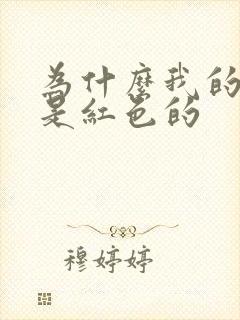 为什麽我的
是紅色的
穆婷婷